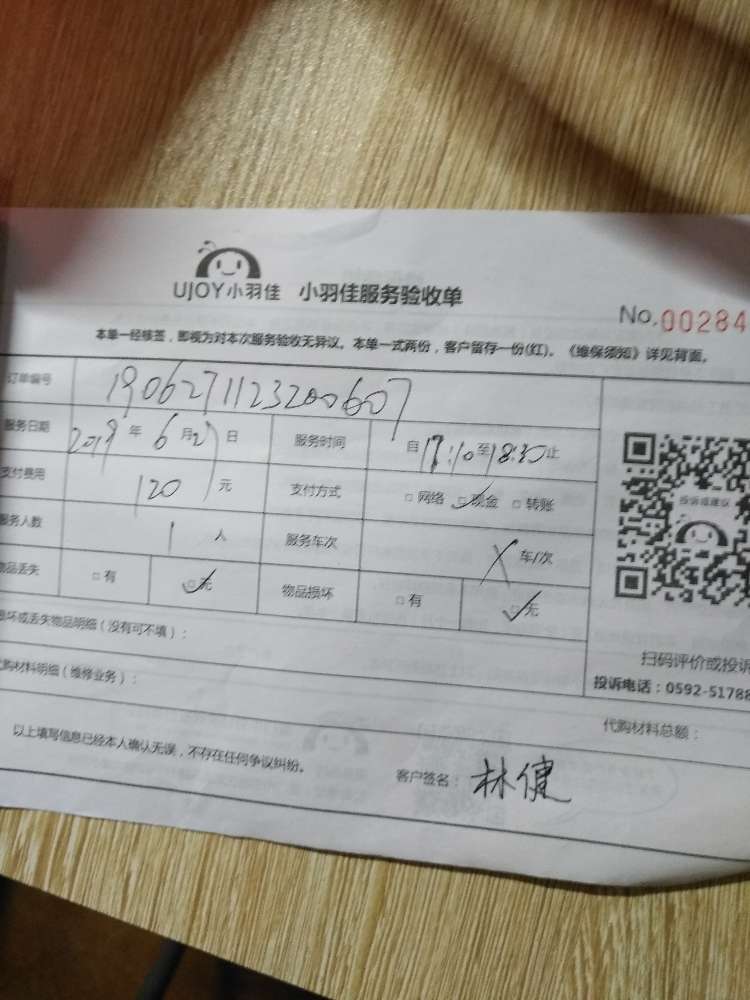 UJOY小羽佳 小羽佳服务验收单
No.00284
本单一经核签，即视为对本次服务验收无异议。本单一式两份，客户留存一份(红)。《维保须知》详见背面。
订单编号 1906271123200607
服务日期 2019 年 6 月 27 日 服务时间 自 17:10 至 18:30 止
支付费用 120 元 支付方式 □网络 ☑现金 □转账
服务人数 1 人 服务车次 X 车/次
物品丢失 □有 ☑无 物品损坏 □有 ☑无
损坏或丢失物品明细（没有可不填）：
代购材料明细（维修业务）：
投诉或建议
扫码评价或投诉
投诉电话：0592-51788
代购材料总额：
以上填写信息已经本人确认无误，不存在任何争议纠纷。
客户签名：林健